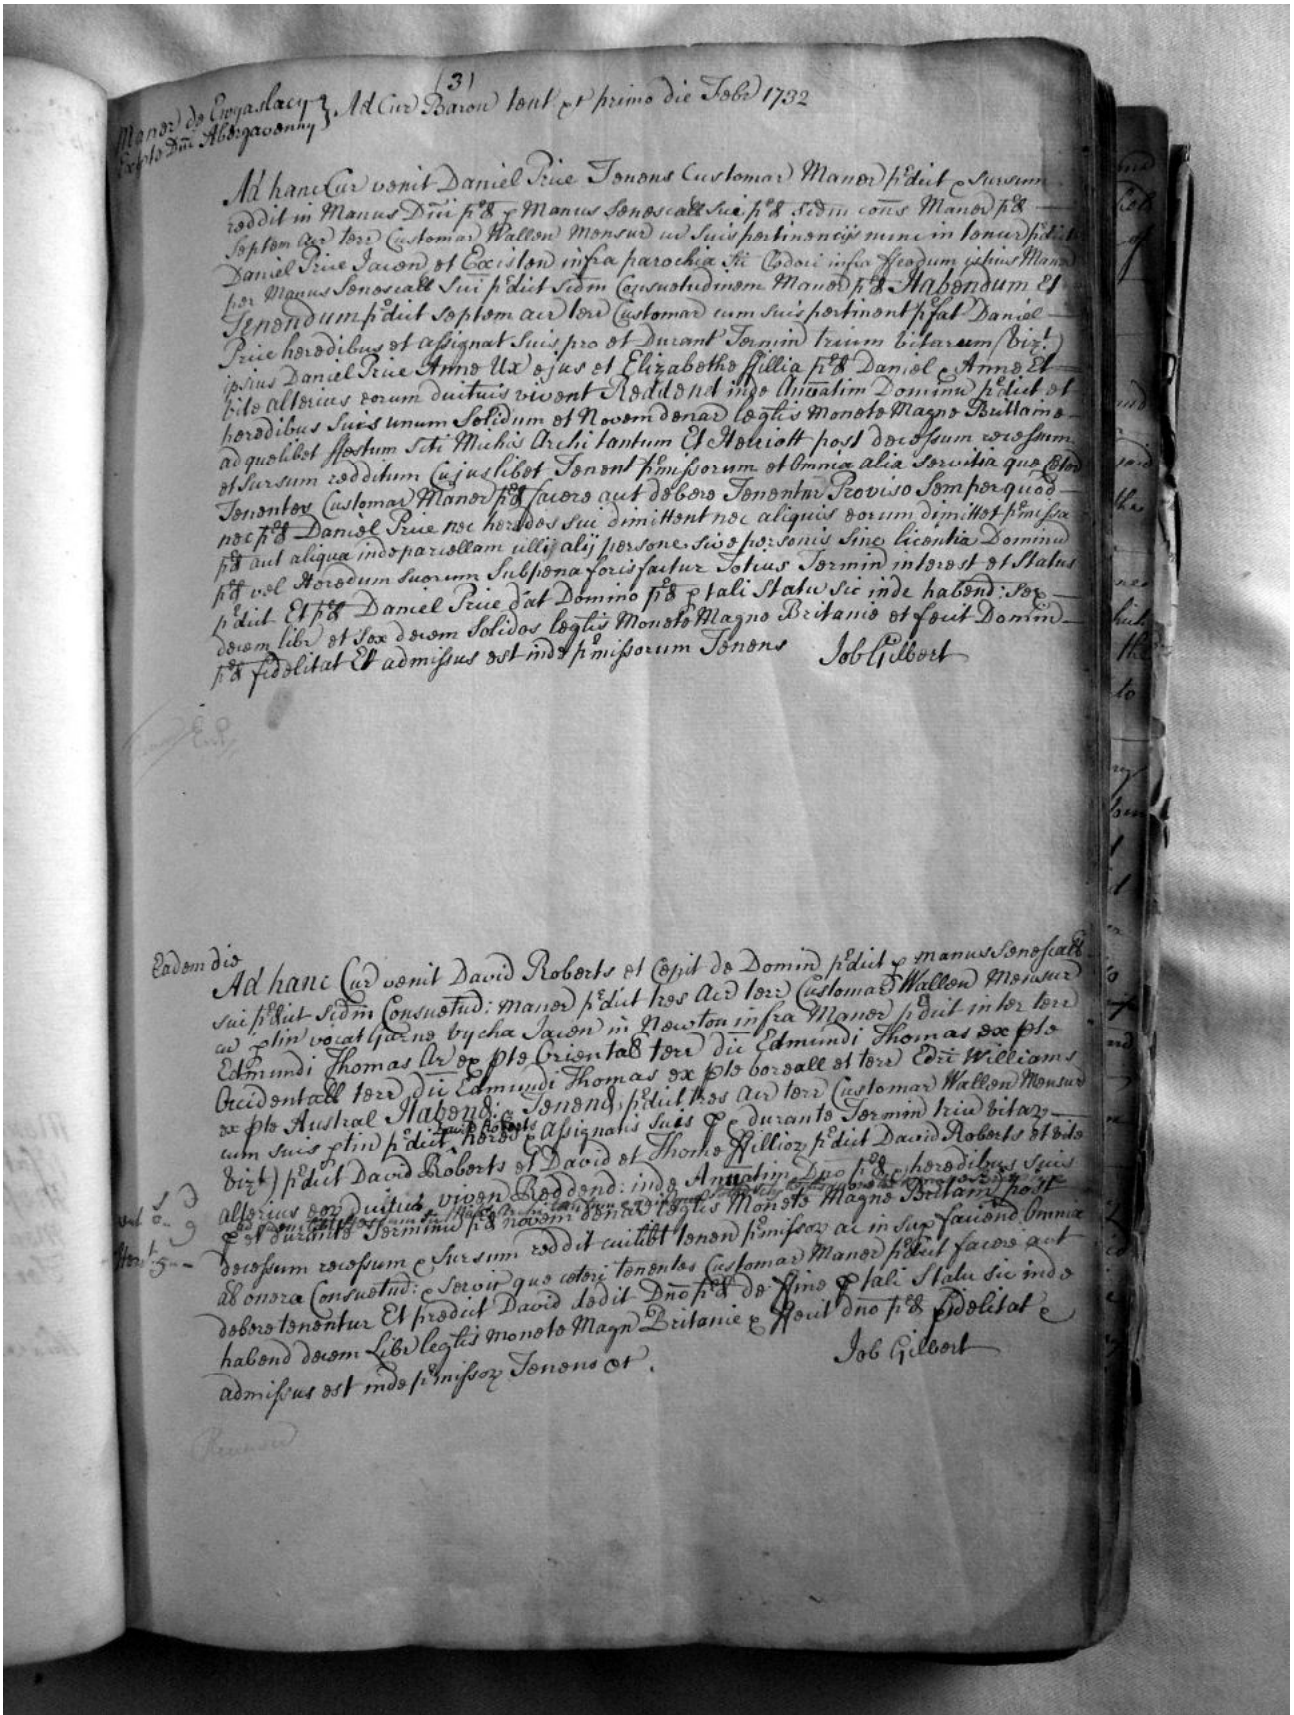 (3)
Maner de Ewyaslacy
Ex pte Dni Abergavenny } Ad Cur Baron tent pt primo die Febr 1732
Ad hanc Cur venit Daniel Price Tenens Customar Maner p'dict & sursum
reddit in Manus Dni p'd & p Manus Senescall sui p'd scdm cons Maner p'd
septem acr terr Customar Wallen Mensur cu suis pertinencijs nunc in tenur p'dict
Daniel Price Jacen et Existen infra parochia Sti Clodoci infra ffeodum istius Maner
per Manus Senescall Sui p'dict scdm Consuetudinem Maner p'd Habendum Et
Tenendum p'dict septem acr terr Customar cum suis pertinent p'fat Daniel
Price heredibus et assignat suis pro et Durant Termin trium Vitarum (vizt)
ipsius Daniel Price Anne Ux ejus et Elizabethe ffillia p'd Daniel & Anne Et
vite alterius eorum diutius vivent Reddend inde Annatim Dominu p'dict et
heredibus Suis unum Solidum et Novem denar legtis Monete Magne Brittanie
ad quelibet ffestum Sti Michis Archi tantum Et Herriott post decessum recessum
et sursum redditum Cujuslibet Tenent p'missorum et Omnia alia servitia que Ceter
Tenentes Customar Maner p'd facere aut debere Tenentur Proviso Semper quod
nec p'd Daniel Price nec heredes sui dimittent nec aliquis eorum dimittet p'missa
p'd aut aliqua inde parcellam ullij alij persone sive personis sine licentia Dominu
p'd vel Heredum suorum Subpena forisfactur Totius Termin interest et Status
p'dict Et p'd Daniel Price dat Domino p'd p tali Statu sic inde habend: sex
decem libr et sex decem Solidos legtis Monete Magne Britanie et fecit Domin
p'd fidelitat Et admissus est inde p'missorum Tenens Job Gilbert
Eadem die
Ad hanc Cur venit David Roberts et Cepit de Domin p'dict p manus Senescall
sui p'dict scdm Consuetud: Maner p'dict tres Acr terr Customar Wallen Mensur
cu ptin vocat Garne vycha Jacen in Newton infra Maner p'dict inter terr
Edmundi Thomas Ar ex pte Oriental terr dii Edmundi Thomas ex pte
Occidentall terr dii Edmundi Thomas ex pte boreall et terr Edri Williams
ex pte Austral Habend: & Tenend, p'dict tres Acr terr Customar Wallen Mensur
David Roberts
cum suis ptin p'dict hered & Assignatis suis p & durante Termin triu vitaz
vizt) p'dict David Roberts et David et Thome ffillioz p'dict David Roberts et vite
alterius eoz diutius viven Reddend: inde Annatim Dno p'd & heredibus suis
p et durante Terminu p'd novem denar legtis Monete Magne Britani post
s d
rent 0 - 9
decessum recessum & sursum reddit cuilibt tenen p'missoz ac insup faciend Omnia
Heret 5 - -
al onera Consuetud: & servic que ceteri tenentes Customar Maner p'dict facere aut
debere tenentur Et predict David dedit Dno p'd de ffine p tali Statu sic inde
habend decem Libr legtis monete Magn Britanie & ffecit dno p'd fidelitat &
admissus est inde p'missoz Tenens et. Job Gilbert